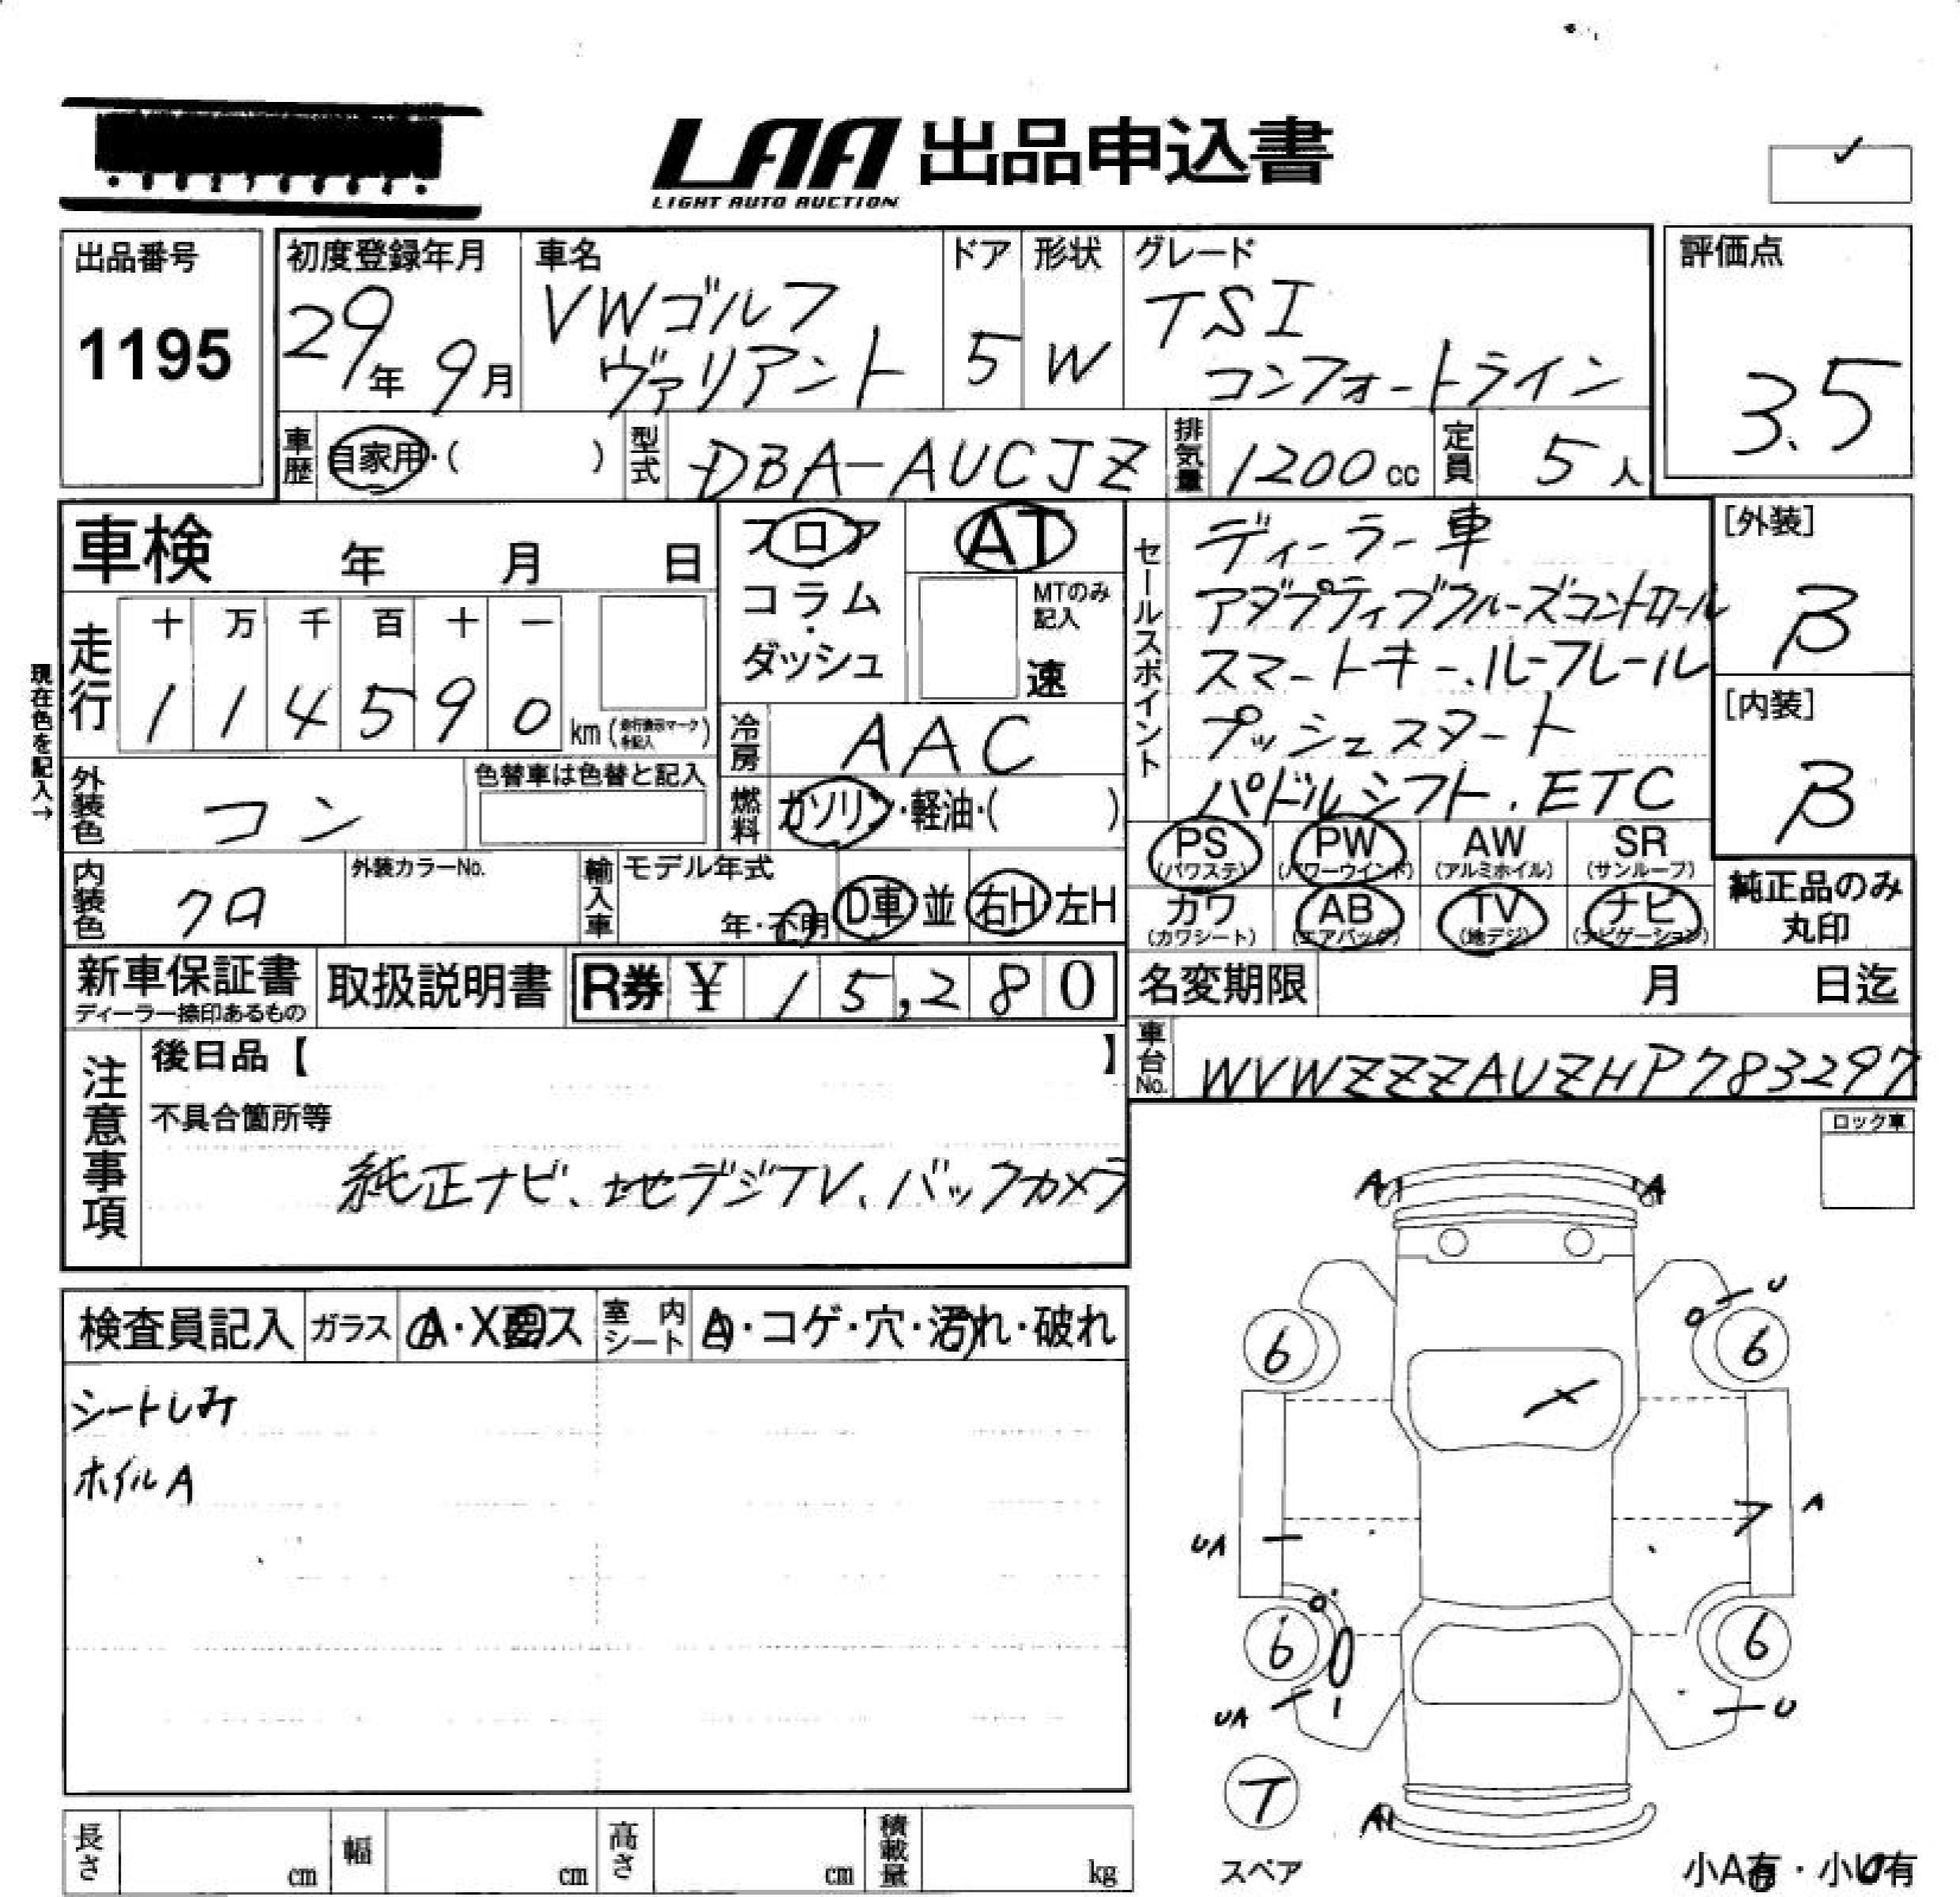 LAA 出品申込書
LIGHT AUTO AUCTION
✓
出品番号
1195
初度登録年月
29年 9月
車名
VWゴルフ
ヴァリアント
ドア
5
形状
W
グレード
TSI
コンフォートライン
評価点
3.5
車歴 自家用・( )
型式 DBA-AUCJZ
排気量 1200cc
定員 5人
車検 年 月 日
フロア
コラム
・
ダッシュ
AT
MTのみ
記入
速
セールスポイント
ディーラー車
アダプティブクルーズコントロール
スマートキー、ルーフレール
プッシュスタート
パドルシフト、ETC
[外装]
β
[内装]
β
現在色を記入→
走行
十 万 千 百 十 一
1 1 4 5 9 0 km
冷房 AAC
外装色 コン
色替車は色替と記入
燃料 ガソリン・軽油・( )
内装色 クロ
外装カラーNo.
輸入車
モデル年式
年・不明
D車 並 右H 左H
PS (パワステ) PW (パワーウインド) AW (アルミホイル) SR (サンルーフ)
カワ (カワシート) AB (エアバッグ) TV (地デジ) ナビ (ナビゲーション)
純正品のみ
丸印
新車保証書
ディーラー捺印あるもの
取扱説明書
R券 ¥ 15,280
名変期限 月 日迄
車台No. WVWZZZAUZHP783297
注意事項
後日品【 】
不具合箇所等
純正ナビ、地デジTV、バックカメラ
ロック車
検査員記入 ガラス A・X要ス 室内シート A・コゲ・穴・汚れ・破れ
シートしみ
ホイルA
A A
U
6 6
X
A
UA
6 6
UA U
T
スペア
A
小A有・小U有
長さ cm 幅 cm 高さ cm 積載量 kg